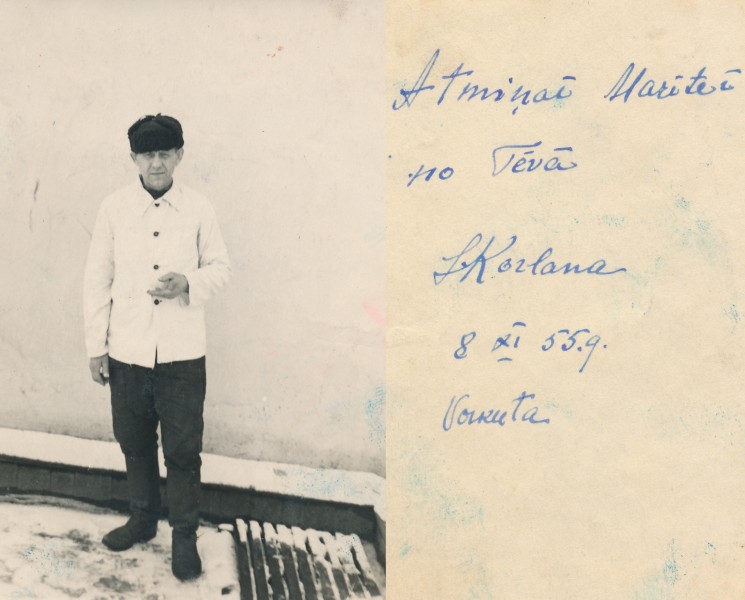 Atmiņai Marītei
no Tēva
SKozlana
8 XI 55.g.
Vorkuta